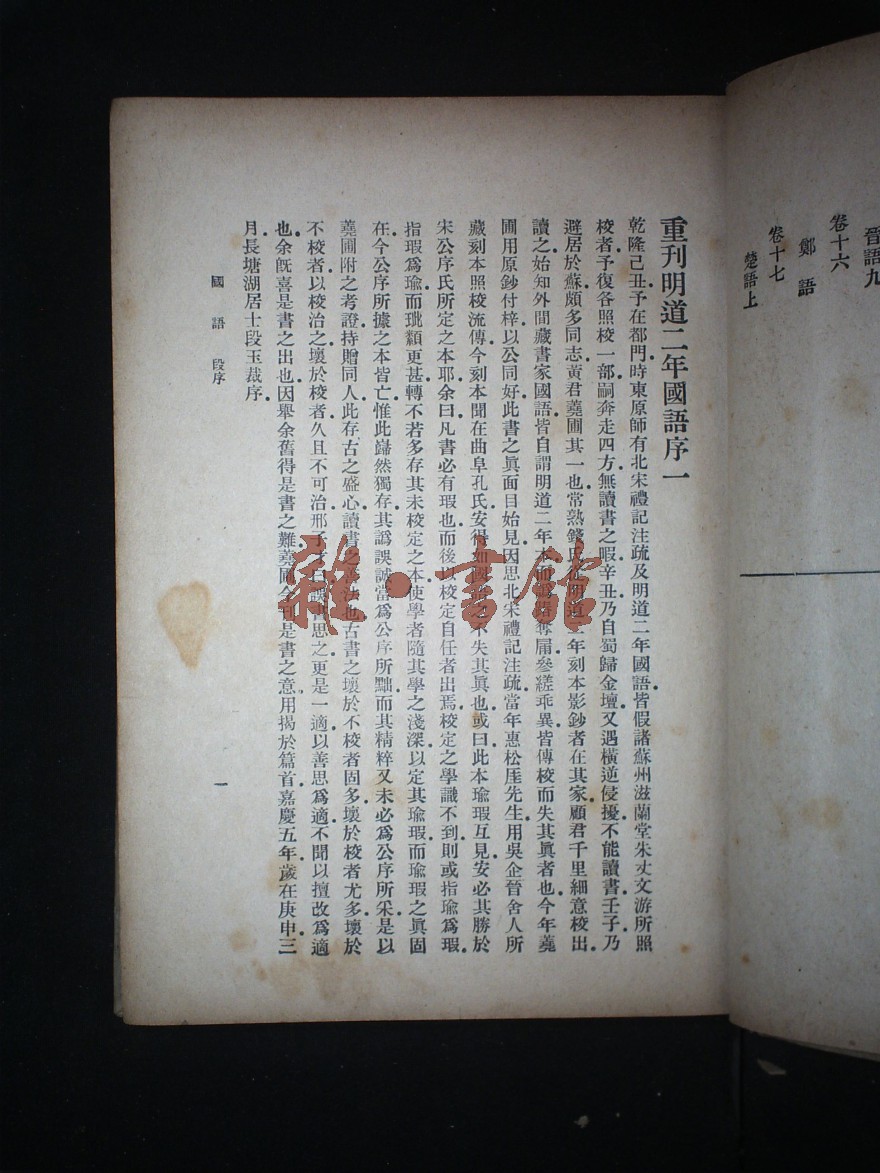 晉語九
卷十六
鄭語
卷十七
楚語上
重刊明道二年國語序一
乾隆己丑予在都門時東原師有北宋禮記注疏及明道二年國語皆假諸蘇州滋蘭堂朱丈文游所照
校者予復各照校一部嗣奔走四方無讀書之暇辛丑乃自蜀歸金壇又遇橫逆侵擾不能讀書壬子乃
避居於蘇頗多同志黃君蕘圃其一也常熟錢氏從明道二年刻本影鈔者在其家顧君千里細意校出
讀之始知外間藏書家國語皆自謂明道二年本而譌奪屚參縒乖異皆傳校而失其眞者也今年蕘
圃用原鈔付梓以公同好此書之眞面目始見因思北宋禮記注疏當年惠松厓先生用吳企晉舍人所
藏刻本照校流傳今刻本聞在曲阜孔氏安得如國語之不失其眞也或曰此本瑜瑕互見安必其勝於
宋公序氏所定之本耶余曰凡書必有瑕也而後以校定自任者出焉校定之學識不到則或指瑜爲瑕
指瑕爲瑜而玼纇更甚轉不若多存其未校定之本使學者隨其學之淺深以定其瑜瑕而瑜瑕之眞固
在今公序所據之本皆亡惟此巋然獨存其譌誤誠當爲公序所黜而其精粹又未必爲公序所采是以
蕘圃附之考證持贈同人此存古之盛心讀書之善法也古書之壞於不校者固多壞於校者尤多壞於
不校者以校治之壞於校者久且不可治邢子才曰誤書思之更是一適以善思爲適不聞以擅改爲適
也余旣喜是書之出也因舉余舊得是書之難蕘圃今刊是書之意用揭於篇首嘉慶五年歲在庚申三
月長塘湖居士段玉裁序
國語 段序 一
雜·書館